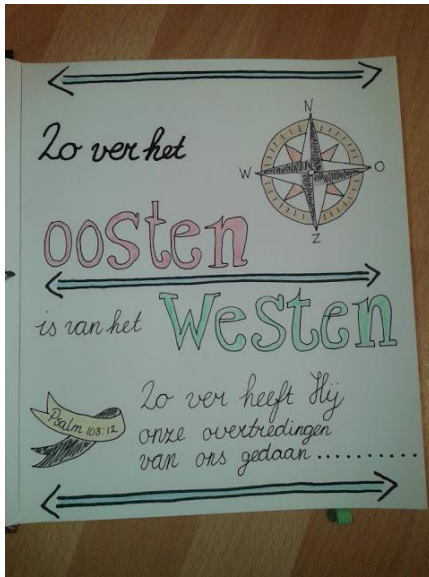 Zo ver het
N
W O
Z
oosten
is van het Westen
Psalm 103:12
Zo ver heeft Hij
onze overtredingen
van ons gedaan..........